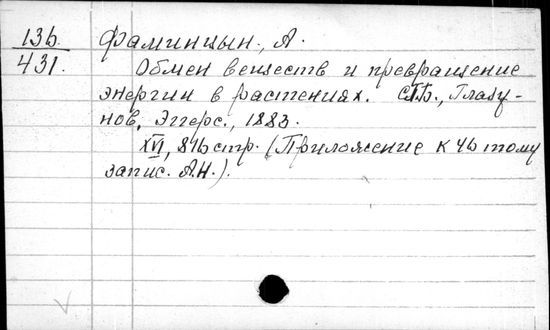 136. Фаминцын, А.
431. Обмен веществ и превращение
энергии в растениях. СПБ., Глазу-
нов, Эггерс., 1883.
XVI, 816 стр. (Приложение к 46 тому
запис. А.Н.).